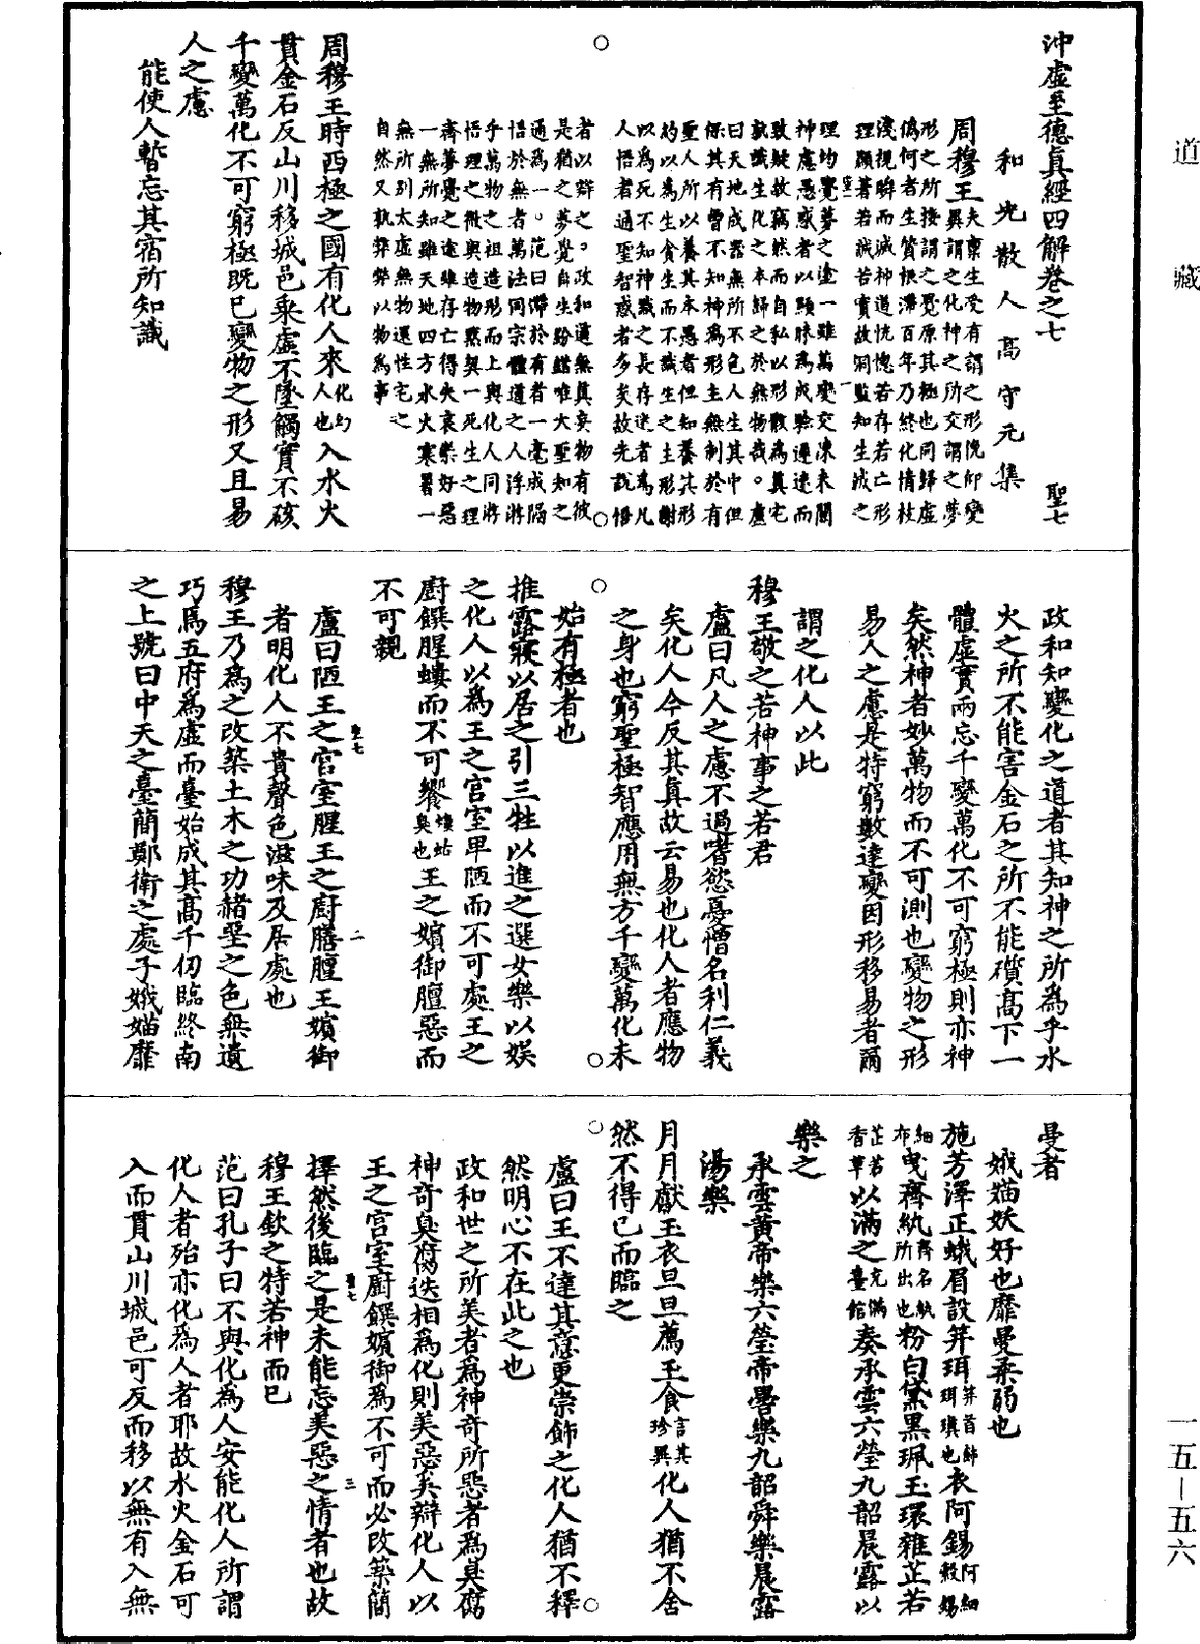 道藏
沖虛至德真經四解卷之七　聖七
和光散人高守元集
周穆王夫稟生受有謂之形俛仰變異謂之化神之所交謂之夢
形之所接謂之覺原其極也同歸虛
偽何者生質根滯百年乃終化情枝
淺視瞬而滅神道恍惚若存若亡形
理顯著若誠若實故洞監知生滅之
理均覺夢之塗一雖萬變交陳未關
神慮愚惑者以顯昧為成驗遲速而
致疑故竊然而自私以形骸為真宅
孰識生化之本歸之於無物哉。盧
曰天地成器無所不包人生其中但
保其有曾不知神為形主無制於有
聖人所以養其本愚者但知養其形
約以為生食生而不識生之主形謝
以為死不知神識之長存迷者為凡
人悟者通聖智惑者多矣故先說悟
者以辯之。政和道無真妄物有彼
是猶之夢覺自生紛錯唯大聖知之
通為一。范曰滯於有者一毫成隔
悟於無者萬法同宗體道之人浮游
乎萬物之祖造形而上與化人同游
悟理之微與造物默契一死生之理
齊夢覺之途雖存亡得失哀樂好惡
一無所知雖天地四方水火寒暑一
無所別太虛無物還性宅之
自然又孰弊弊以物為事
周穆王時西極之國有化人來化幻人也入水火
貫金石反山川移城邑乘虛不墜觸實不硋
千變萬化不可窮極既已變物之形又且易
人之慮
能使人暫忘其宿所知識
政和知變化之道者其知神之所為乎水
火之所不能害金石之所不能礙高下一
體虛實兩忘千變萬化不可窮極則亦神
矣然神者妙萬物而不可測也變物之形
易人之慮是特窮數達變因形移易者爾
謂之化人以此
穆王敬之若神事之若君
盧曰凡人之慮不過嗜慾憂憎名利仁義
矣化人今反其真故云易也化人者應物
之身也窮聖極智應用無方千變萬化未
始有極者也
推露寢以居之引三牲以進之選女樂以娛
之化人以為王之宮室卑陋而不可處王之
廚饌腥螻而不可饗螻蛄臭也王之嬪御膻惡而
不可親
盧曰陋王之宮室腥王之廚膳膻王嬪御
者明化人不貴聲色滋味及居處也
穆王乃為之改築土木之功赭堊之色無遺
巧焉五府為虛而臺始成其高千仞臨終南
之上號曰中天之臺簡鄭衛之處子娥媌靡
曼者
娥媌妖好也靡曼柔弱也
施芳澤正蛾眉設笄珥笄首飾珥瑱也衣阿錫阿細縠錫
細布曳齊紈齊名紈所出也粉白黛黑珮玉環雜芷若
芷若香草以滿之充滿臺館奏承雲六瑩九韶晨露以
樂之
承雲黃帝樂六瑩帝嚳樂九韶舜樂晨露
湯樂
月月獻玉衣旦旦薦玉食言其珍異化人猶不舍
然不得已而臨之
盧曰王不達其意更崇飾之化人猶不釋
然明心不在此之也
政和世之所美者為神奇所惡者為臭腐
神奇臭腐迭相為化則美惡奚辯化人以
王之宮室廚饌嬪御為不可而必改築簡
擇然後臨之是未能忘美惡之情者也故
穆王欽之特若神而已
范曰孔子曰不與化為人安能化人所謂
化人者殆亦化為人者耶故水火金石可
入而貫山川城邑可反而移以無有入無
一五－五六